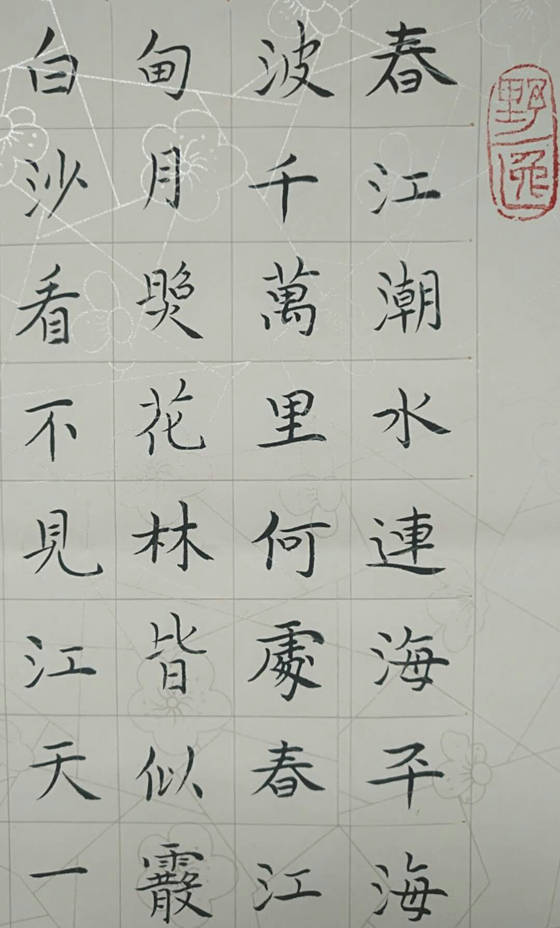 野逸
春江潮水連海平海
波千萬里何處春江
甸月照花林皆似霰
白沙看不見江天一